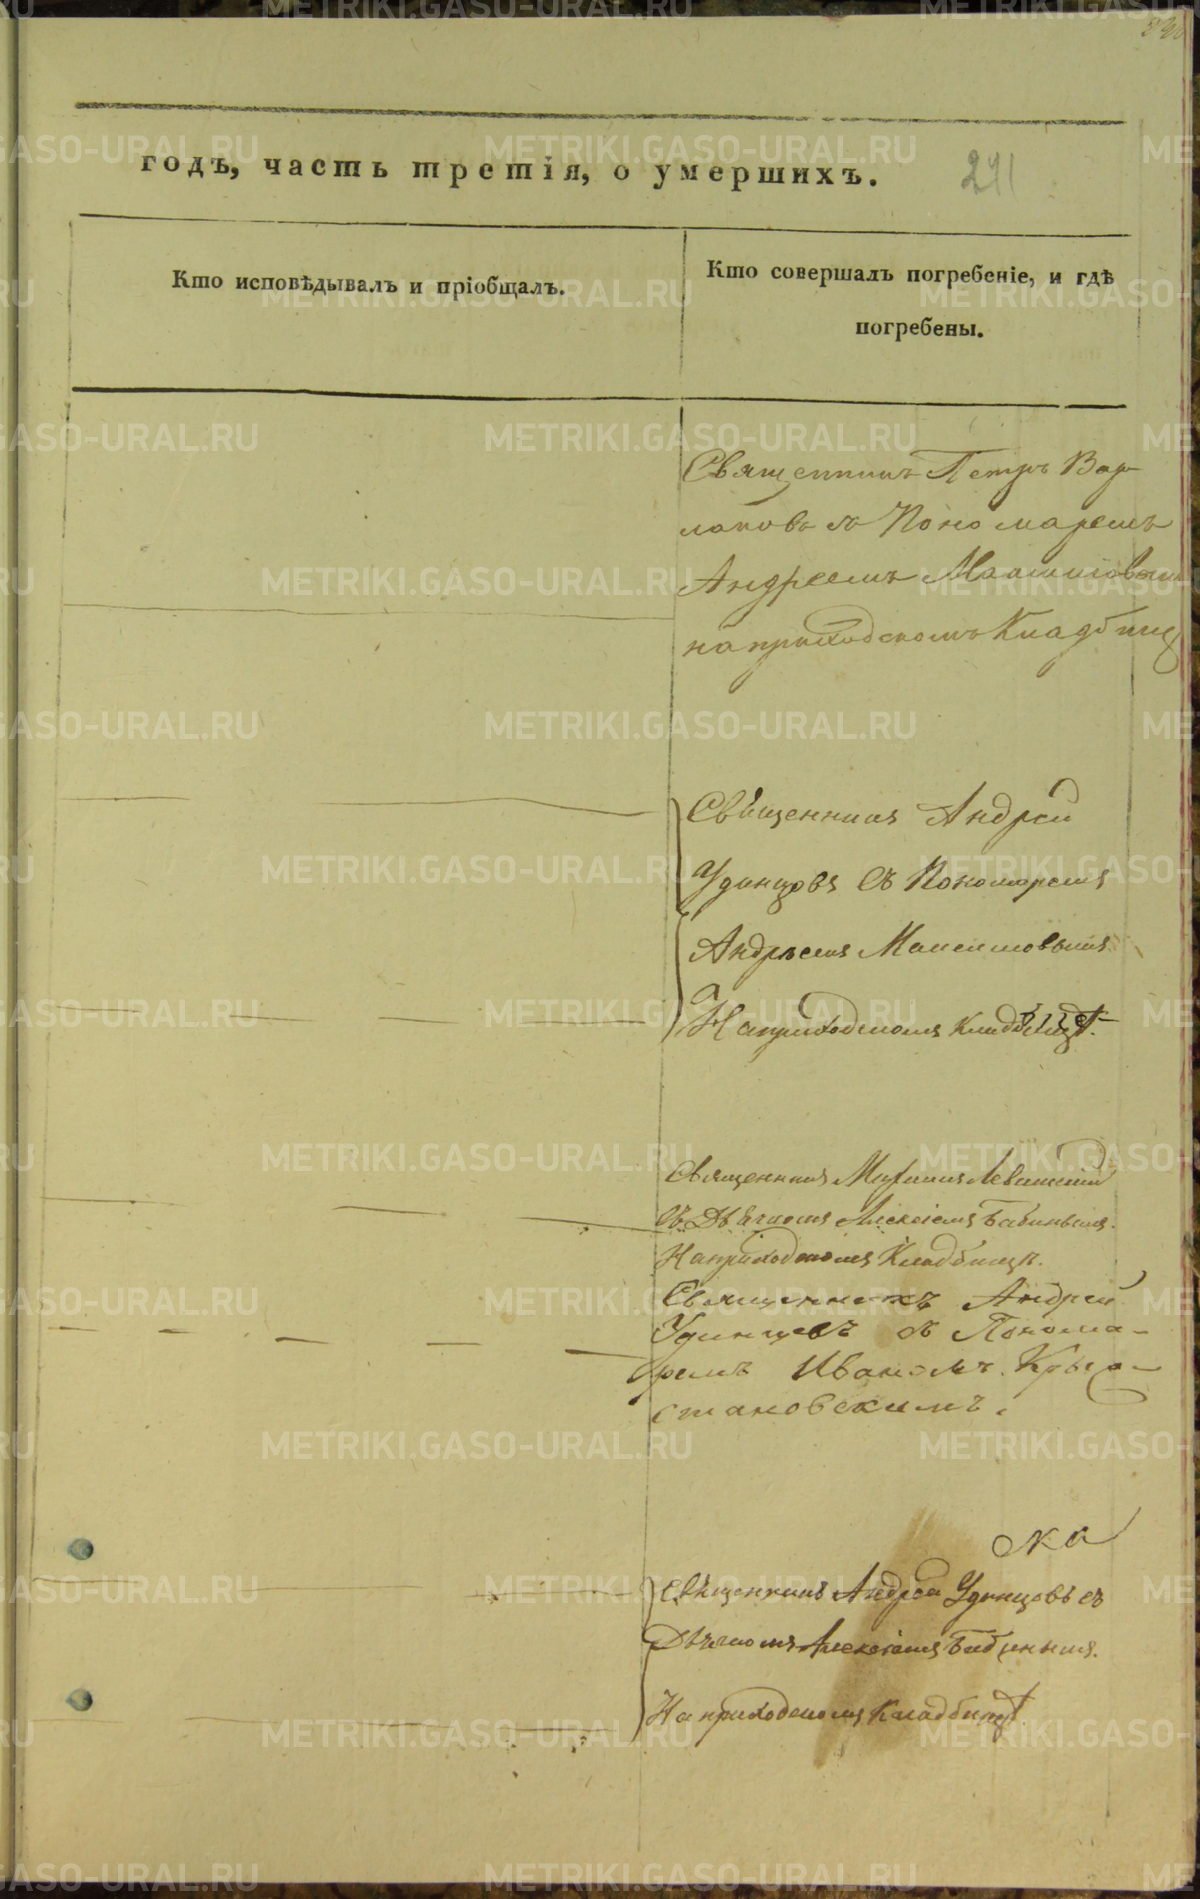 годъ, часть третія, о умершихъ.
241
Кто исповѣдывалъ и пріобщалъ.
Кто совершалъ погребеніе, и гдѣ
погребены.
Священникъ Петръ Вар-
лаковъ съ Пономаремъ
Андреемъ Максимовым
на приходскомъ Кладбищ
Священникъ Андрей
Удинцовъ съ Пономаремъ
Андреемъ Максимовымъ
На приходскомъ кладбищѣ.
Священникъ Левитскій
съ Дьячкомъ Алексіемъ Бабинымъ.
На приходскомъ Кладбищѣ.
Священникъ Андрей
Удинцевъ съ Понома-
ремъ Иваномъ
Священникъ Андрей Удинцовъ съ
Дьячкомъ Алексіемъ Бабинымъ.
На приходскомъ кладбищѣ.
METRIKI.GASO-URAL.RU